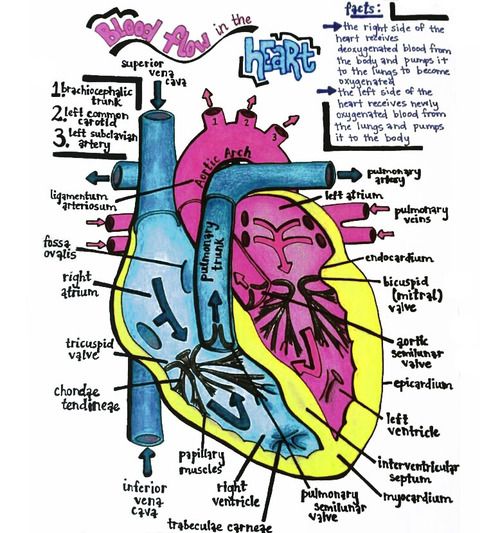 Blood flow in the
HEART
facts:
the right side of the
heart receives
deoxygenated blood from
the body and pumps it
to the lungs to become
oxygenated
the left side of the
heart receives newly
oxygenated blood from
the lungs and pumps
it to the body
superior
vena
cava
1. brachiocephalic
trunk
2. left common
carotid
3. left subclavian
artery
1
2
3
Aortic Arch
pulmonary
artery
left atrium
ligamentum
arteriosum
pulmonary
veins
pulmonary
trunk
fossa
ovalis
endocardium
right
atrium
bicuspid
(mitral)
valve
tricuspid
valve
aortic
semilunar
valve
chordae
tendineae
epicardium
left
ventricle
papillary
muscles
interventricular
septum
inferior
vena
cava
right
ventricle
pulmonary
semilunar
valve
myocardium
trabeculae carneae